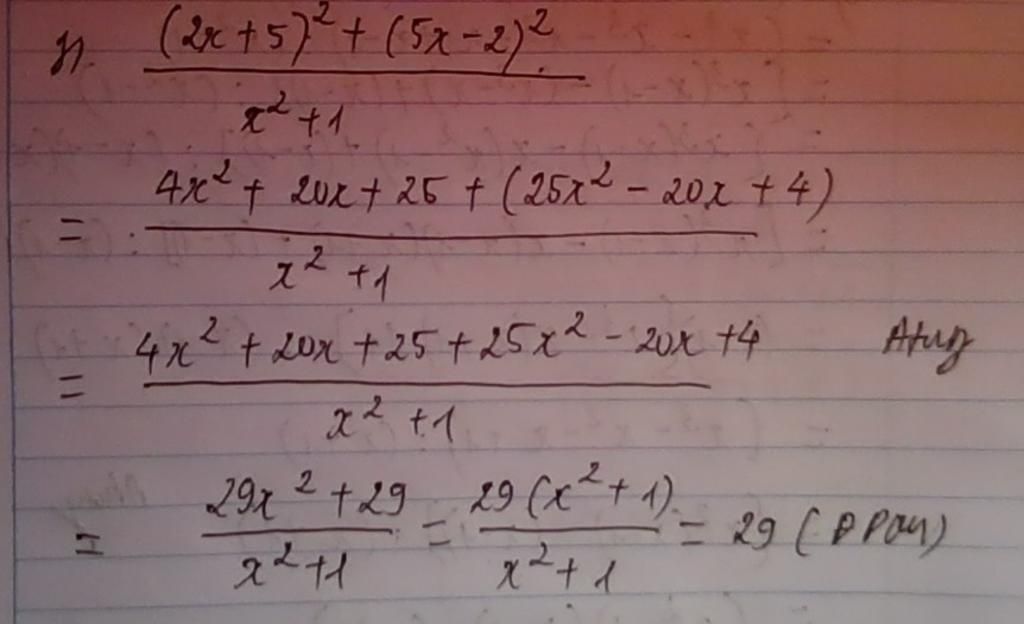 (2x + 5)² + (5x - 2)²
x² + 1
= 4x² + 20x + 25 + (25x² - 20x + 4)
x² + 1
= 4x² + 20x + 25 + 25x² - 20x + 4
x² + 1
= 29x² + 29 / x² + 1 = 29(x² + 1) / x² + 1 = 29 (đpcm)